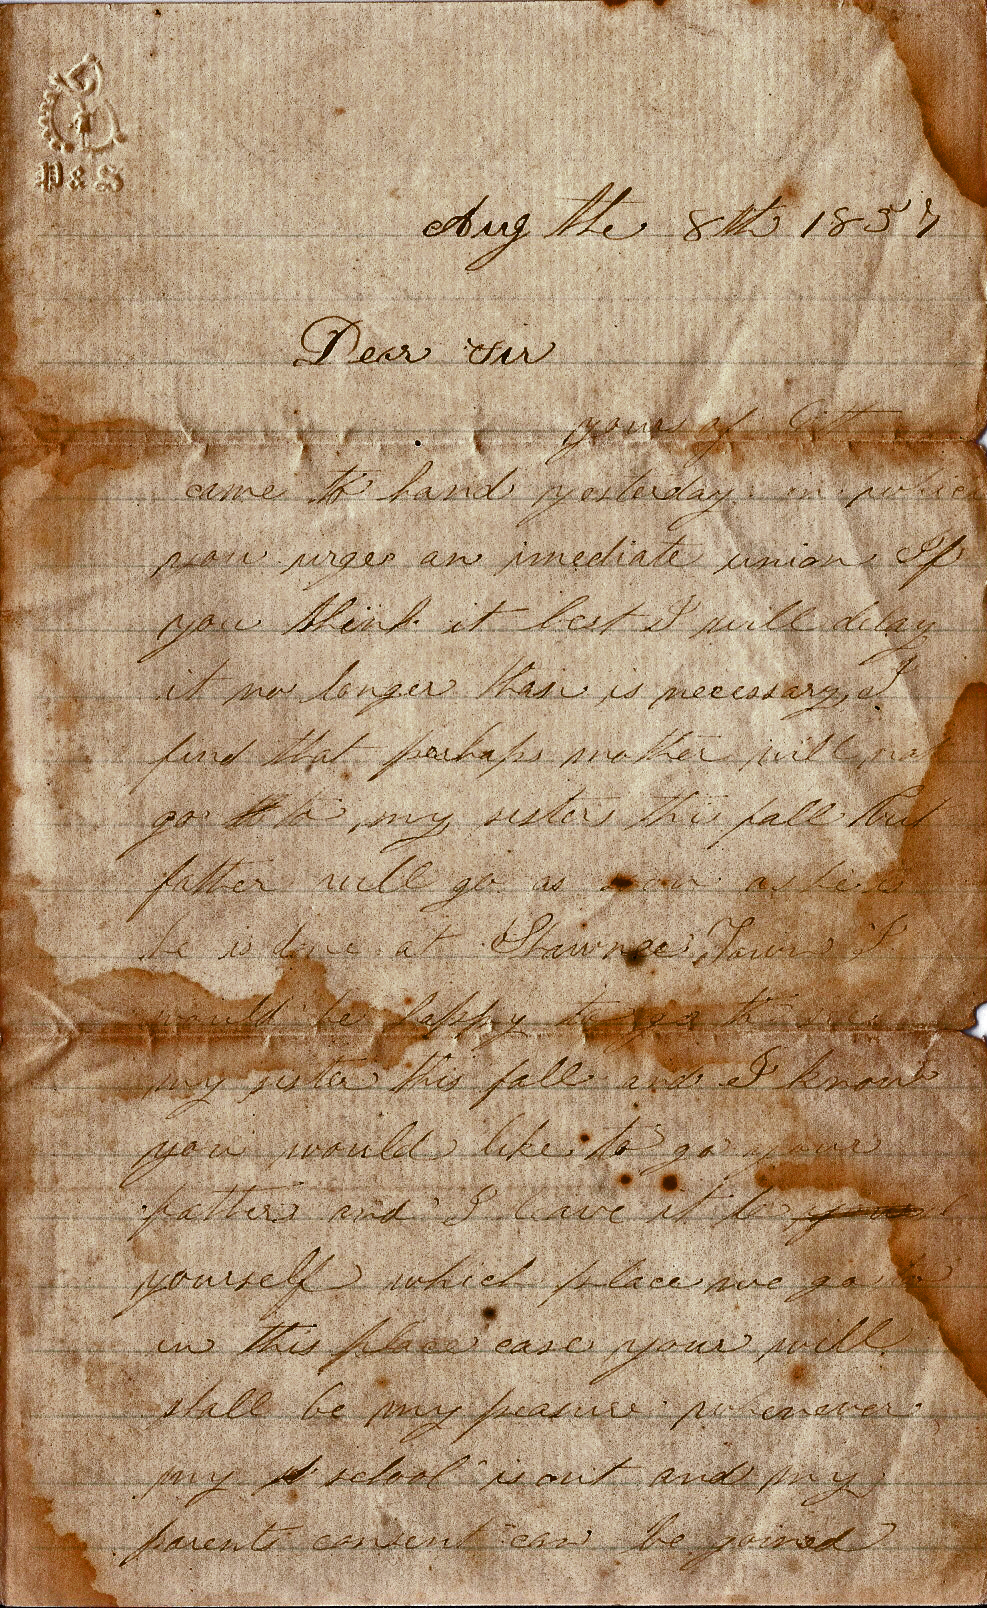 P & S
Aug the 8th 1857
Dear Sir
yours of
came to hand yesterday in which
you urge an imediate union If
you think it best I will delay
it no longer than is necessary I
find that perhaps mother will not
go to my sisters this fall But
father will go as soon as he is
he is done at Shawnee Town I
would be happy to go to see
my sister this fall and I know
you would like to go your
fathers and I leave it to
yourself which place we go to
in this place case your will
shall be my peasure whenever
my school is out and my
parents consent can be gained